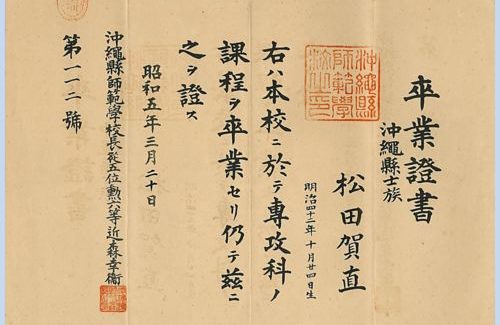 卒業證書
沖繩縣士族
松田賀直
明治四十二年十月廿四日生
右ハ本校ニ於テ專攻科ノ
課程ヲ卒業セリ仍テ茲ニ
之ヲ證ス
昭和五年三月二十日
沖繩縣師範學校長從五位勳六等近森幸衞
第一一二號
沖繩縣
師範學
校之印